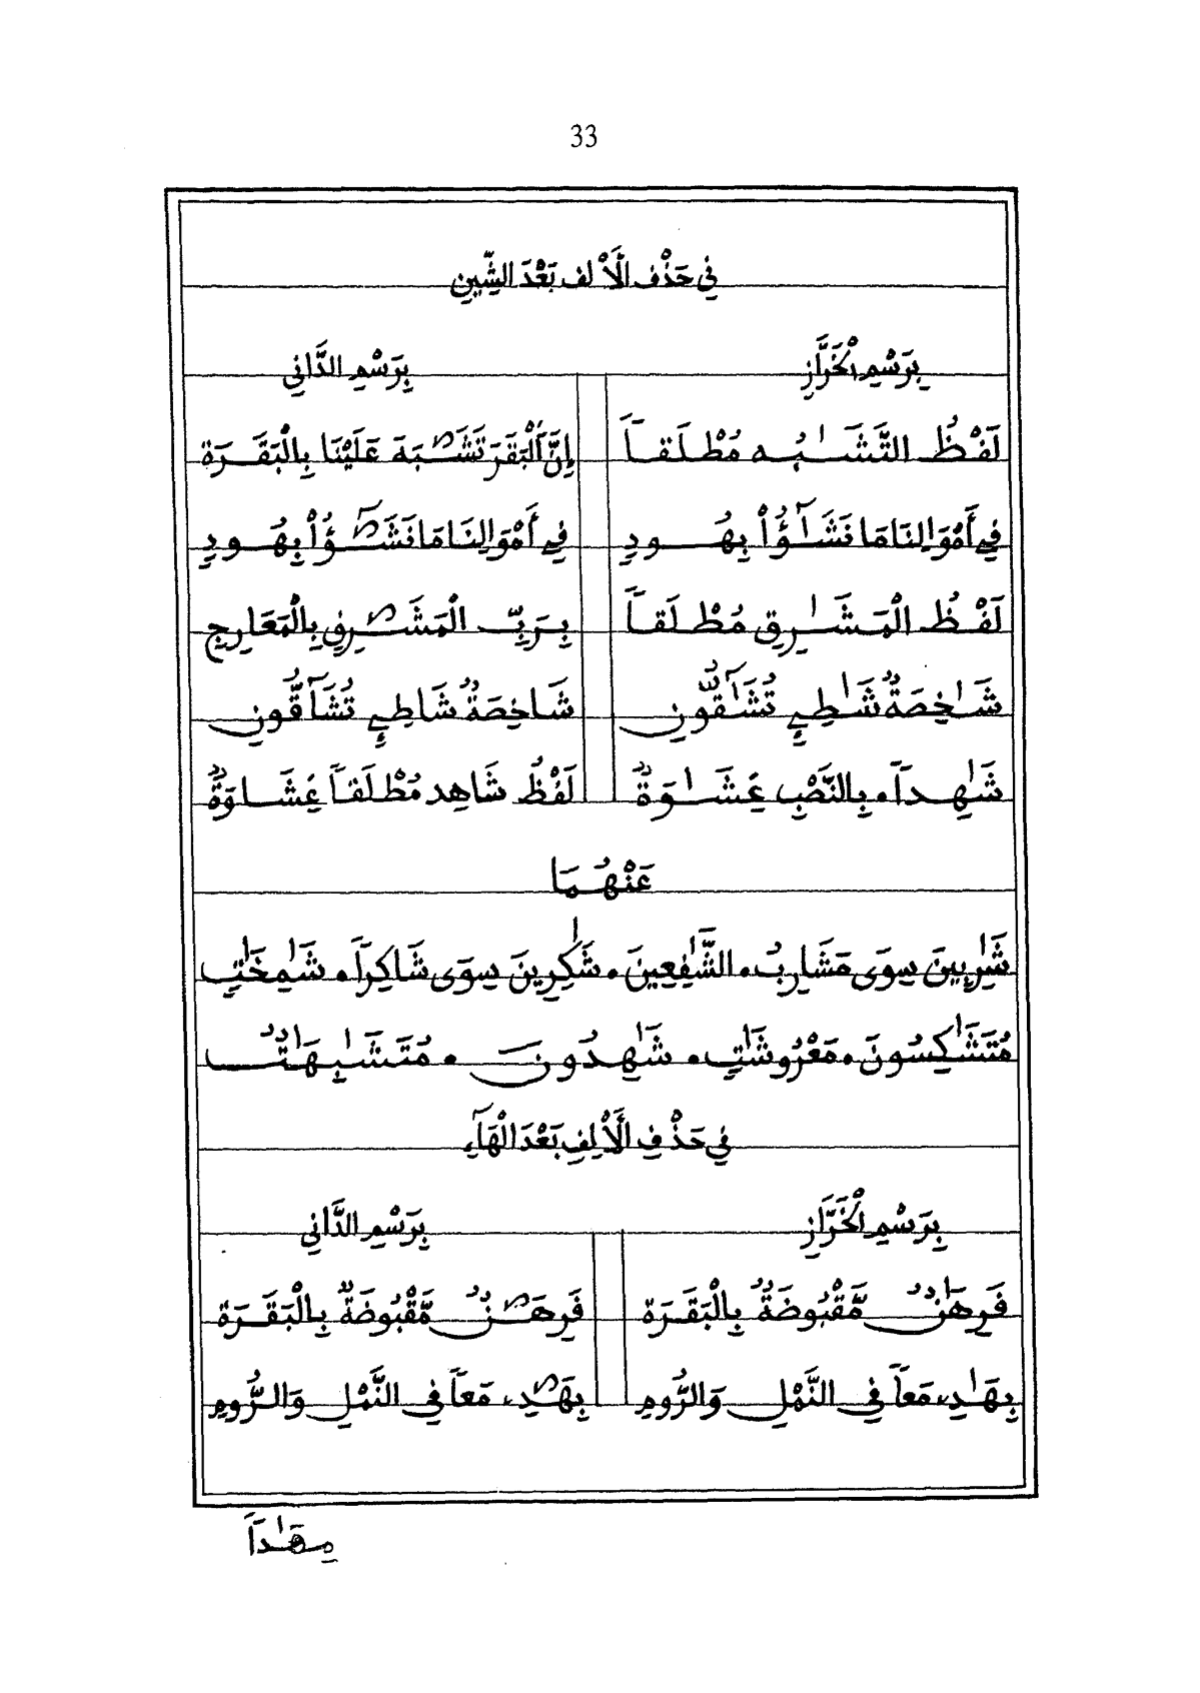 33
فِي حَذْفِ الَْألِف بَعْدَ الشِّينِ
بِرَسْمِ الْخَرَّازِ بِرَسْمِ الدَّانِي
لَفْظُ التَّشَـٰبُه مُطْلَقاً إِنَّ اَلْبَقَرَ تَشَـٰبَهَ عَلَيْنَا بِالْبَقَرَة
فِي أَمْوَالِنَا مَا نَشَـٰٓؤُاْ بِهُودٍ فِي أَمْوَالِنَا مَا نَشَـٰٓؤُاْ بِهُودٍ
لَفْظُ الْمَشَـٰرِقِ مُطْلَقاً بِرَبِّ الْمَشَـٰرِقِ بِالْمَعَارِجِ
شَـٰخِصَةٌ شَـٰطِئِ تُشَـٰٓقُّونِ شَاخِصَةٌ شَاطِئِ تُشَآقُّونِ
شَـٰهِداً • بِالنَّصْبِ غِشَـٰوَةٌ لَفْظُ شَاهِد مُطْلَقاً غِشَاوَةٌ
عَنْهُمَا
شَـٰرِبِينَ سِوَى مَشَارِبُ • الشَّـٰفِعِينَ • شَـٰكِرِينَ سِوَى شَاكِراً • شَـٰمِخَـٰتٍ
مُتَشَـٰكِسُونَ • مَعْرُوشَـٰتٍ • شَـٰهِدُونَ • مُتَشَـٰبِهَـٰتٌ
فِي حَذْفِ الَْألِفِ بَعْدَ الْهَآءِ
بِرَسْمِ الْخَرَّازِ بِرَسْمِ الدَّانِي
فَرِهَـٰنٌ مَّقْبُوضَةٌ بِالْبَقَرَة فَرِهَـٰنٌ مَّقْبُوضَةٌ بِالْبَقَرَة
بِهَـٰدِ، مَعاً فِي النَّمْلِ وَالرُّومِ بِهَـٰدِ، مَعاً فِي النَّمْلِ وَالرُّومِ
مِهَـٰداً